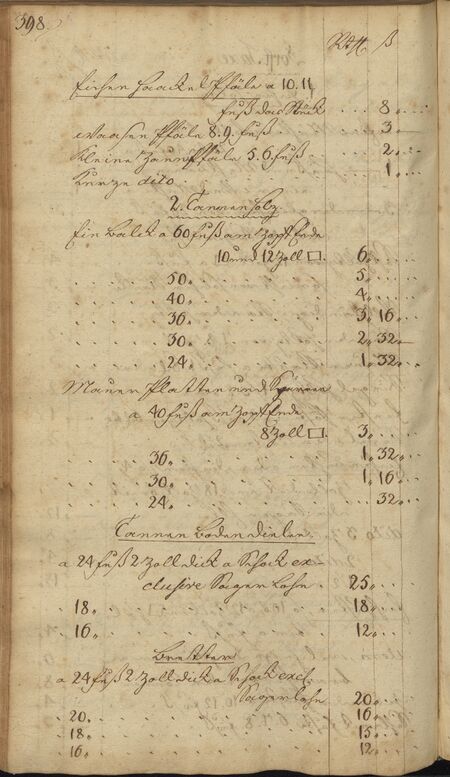 398.
Rthl. ß
Eichen Haackel Pfäle a 10. 11
fuß das Stück . . . . 8. . . .
Pfäle 8. 9. fuß 3. —
Kleine Zaun Pfäle 5. 6. fuß . . . . 2. . . .
Kurze dito . . . 1. . . .
2. Tannen Holz.
Ein Balck a 60 fuß am Zopf Ende
10 und 12 Zoll □. 6. . . .
50. 5. . . .
40. 4. . . .
36. 3. 16. . .
30. 2. 32. . .
24. 1. 32. . .
Mauer Platten und Sparren
a 40 fuß am Zopf Ende
8 Zoll □. 3. . . .
36. 1. 32. . .
30. 1. 16. . .
24. 32. . .
Tannen Boden Dielen
a 24 fuß 2 Zoll dick a Schock ex-
clusive Sager Lohn 25. . . .
18. 18. . . .
16. 12. . . .
Bretter
a 24 fuß 2 Zoll dick a Schock excl.
Sagerlohn 20. . . .
20. 16. . . .
18. 15. . . .
16. 12. . . .